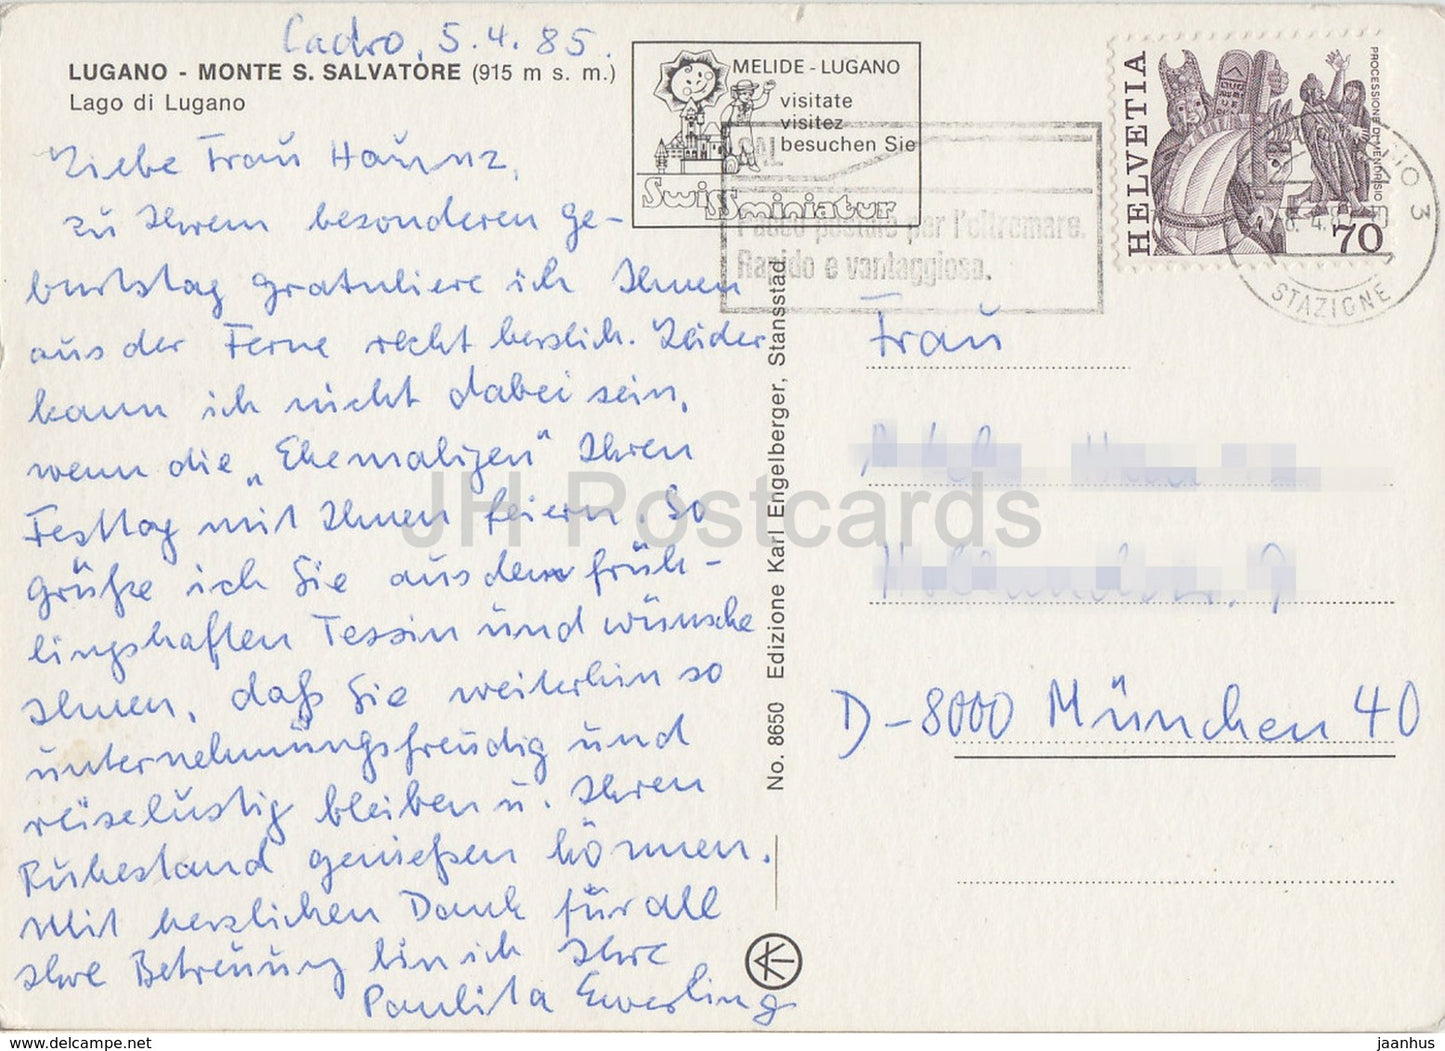 Cadro, 5.4.85.
LUGANO - MONTE S. SALVATORE (915 m s. m.)
Lago di Lugano
Liebe Frau Haunz,
zu Ihrem besonderen Ge-
burtstag gratuliere ich Ihnen
aus der Ferne recht herzlich. Leider
kann ich nicht dabei sein,
wenn die „Ehemaligen" Ihren
Festtag mit Ihnen feiern. So
grüße ich Sie aus dem früh-
lingshaften Tessin und wünsche
Ihnen, daß Sie weiterhin so
unternehmungsfreudig und
reiselustig bleiben u. Ihren
Ruhestand genießen können.
Mit herzlichen Dank für all
Ihre Betreuung bin ich Ihre
Paulita Ewerling
MELIDE - LUGANO
visitate
visitez
besuchen Sie
Swissminiatur
Pacco postale per l'oltremare.
Rapido e vantaggioso.
HELVETIA
PROCESSIONE DI MENDRISIO
70
3
STAZIONE
No. 8650 Edizione Karl Engelberger, Stansstad
Frau
D-8000 München 40
JH Postcards
www.delcampe.net
jaanhus